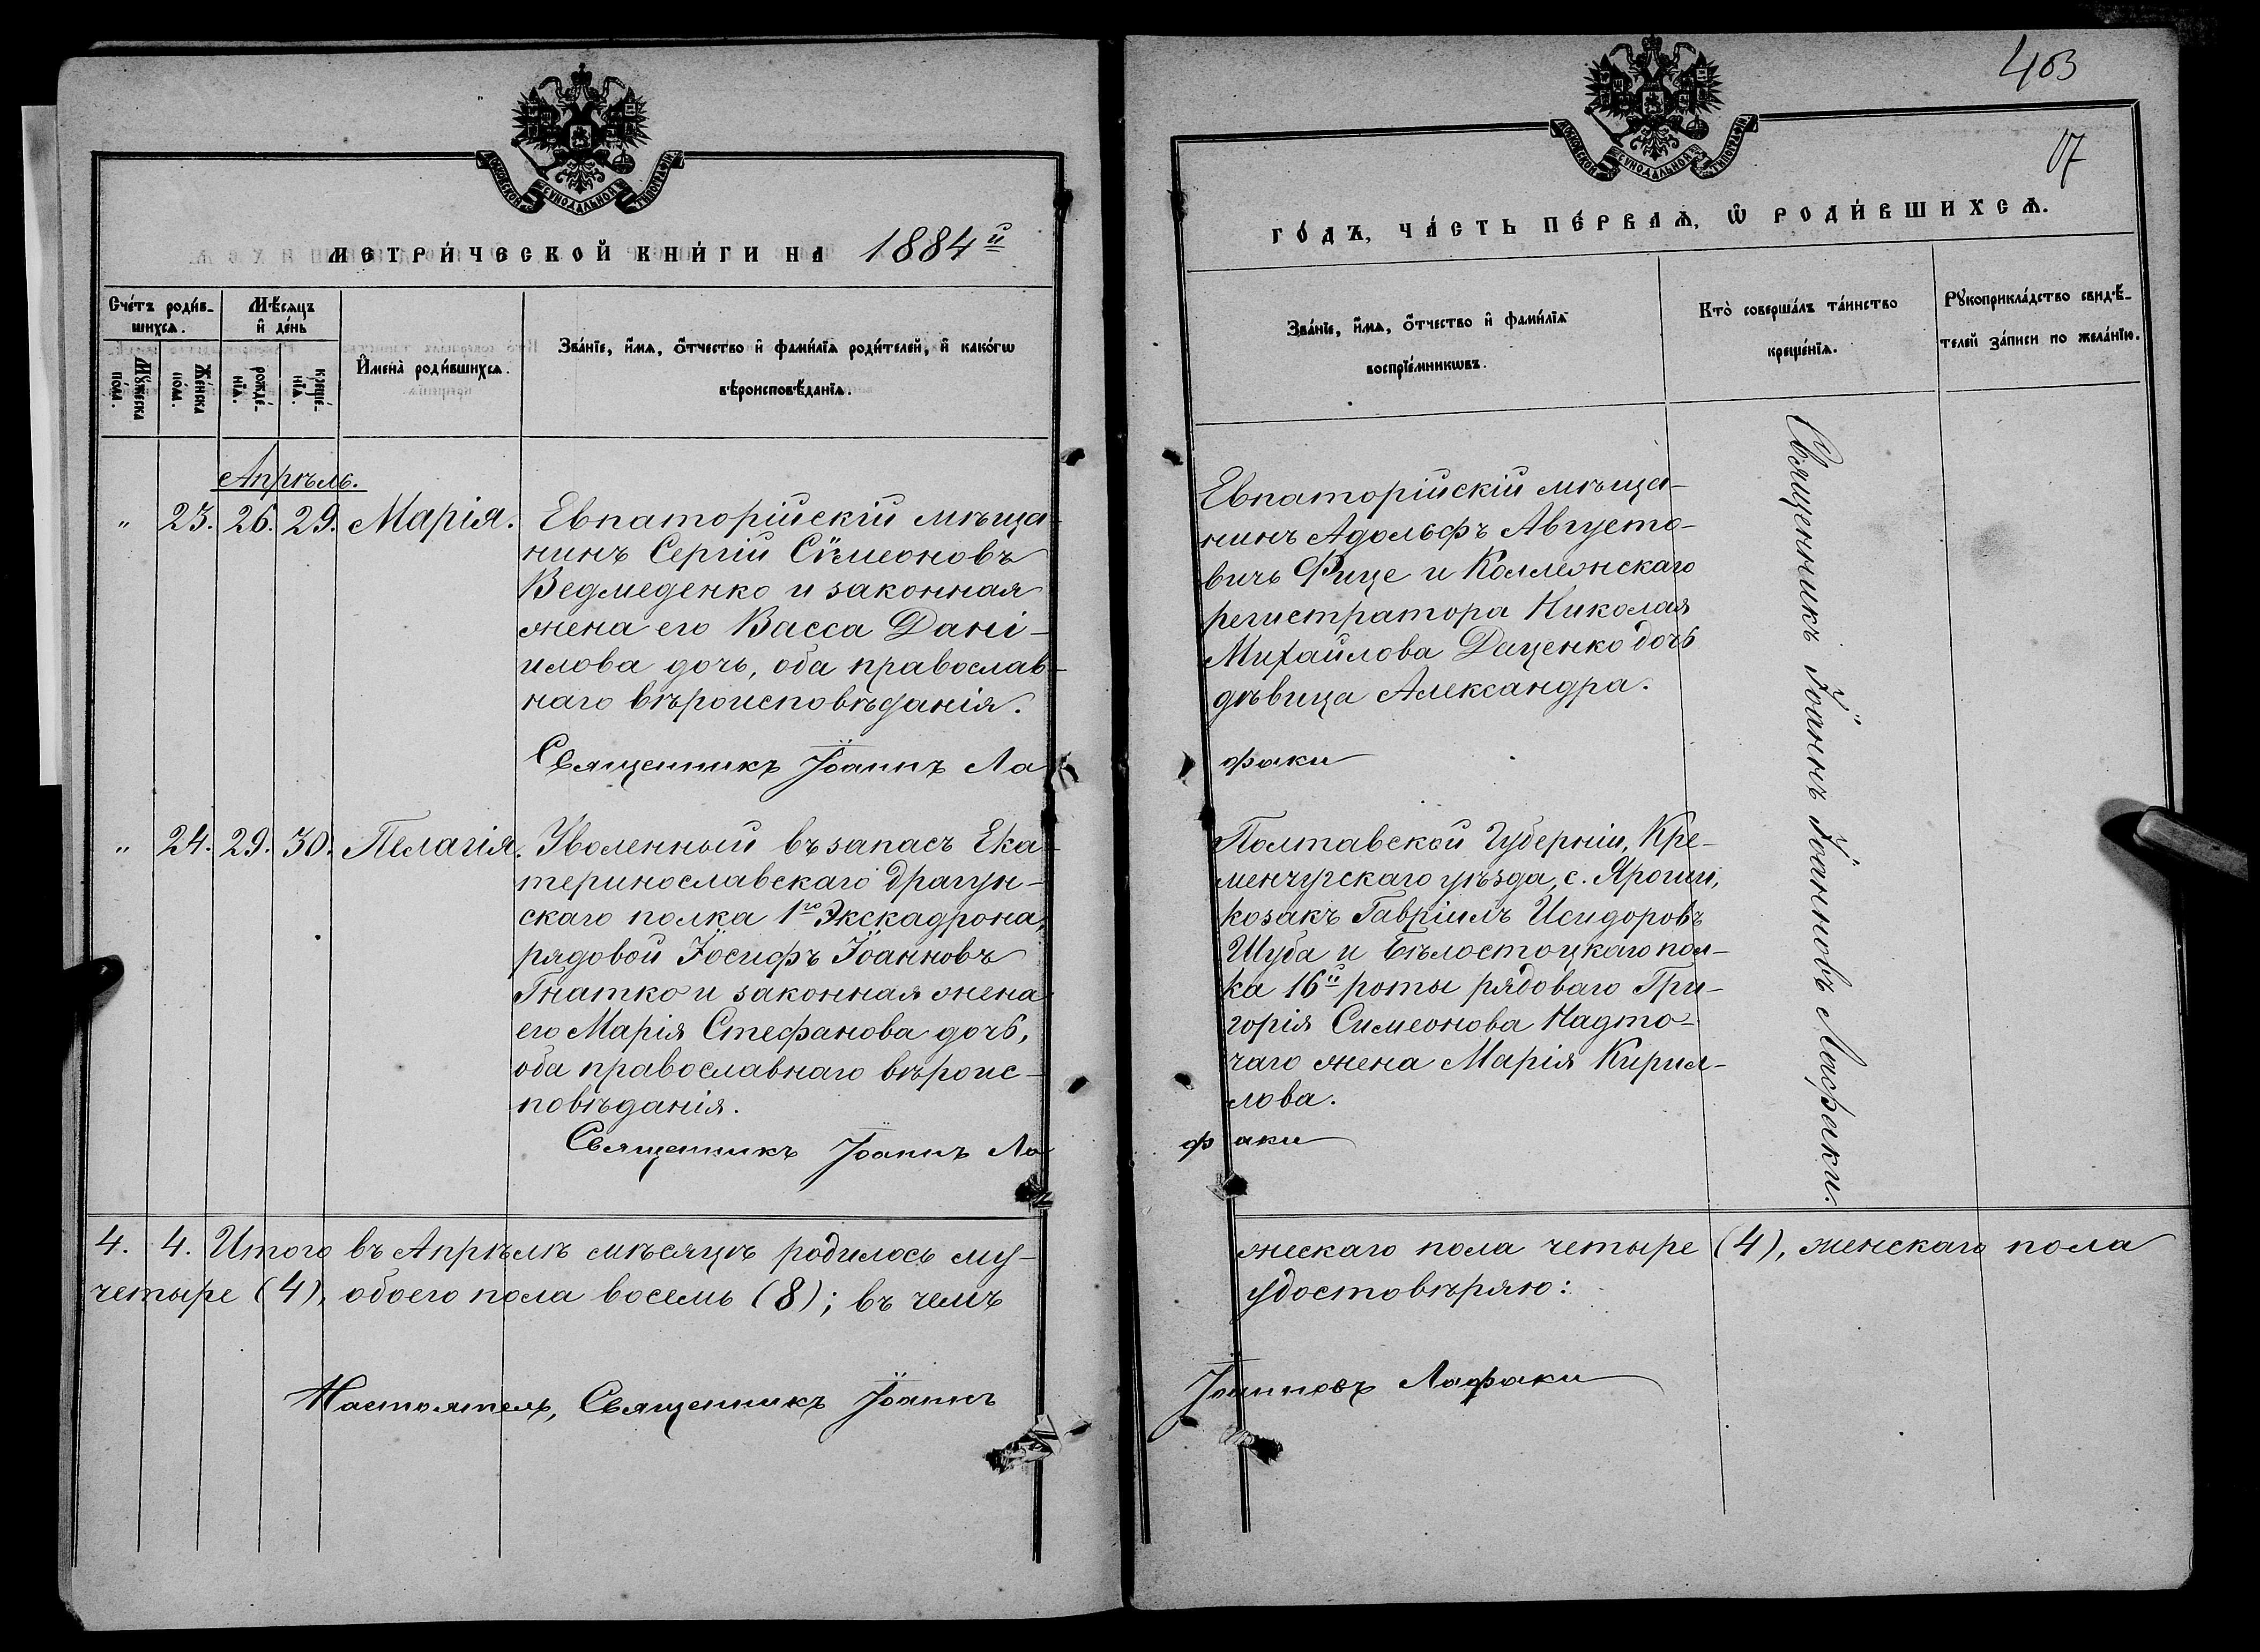 МОСКОВСКОЙ СУНОДАЛЬНОЙ ТИПОГРАФІИ
МЕТРИ́ЧЕСКОЙ КНИ́ГИ НА 1884й
Сче́тъ роди́в-
шихсѧ.
Мѣ́сѧцъ
и҆ де́нь
Мꙋ́жеска
пола.
Же́нска
по́ла.
рожде́-
нїѧ.
креще́-
нїѧ.
И҆мена̀ роди́вшихсѧ.
Зва́нїе, и҆́мѧ, ѻ҆́тчество и҆ фами́лїѧ роди́телей, и҆ како́гѡ
вѣроисповѣ́данїѧ.
Апрѣль.
" 23. 26. 29. Марія. Евпаторійскій мѣща-
нинъ Сергій Сѵмеоновъ
Ведмеденко и законная
жена его Васса Дані-
илова дочь, оба православ-
наго вѣроисповѣданія.
Священникъ Іоаннъ Ла
" 24. 29. 30. Пелагія. Уволенный въ запасъ Ека-
теринославскаго драгун-
скаго полка 1го Экскадрона,
рядовой Іосифъ Іоанновъ
Гнатко и законная жена
его Марія Стефанова дочь,
оба православнаго вѣроис-
повѣданія.
Священникъ Іоаннъ Ла
4. 4. Итого въ Апрѣлѣ мѣсяцѣ родилось му-
четыре (4), обоего пола восемь (8); въ чемъ
Настоятель, Священникъ Іоаннъ
403
МОСКОВСКОЙ СУНОДАЛЬНОЙ ТИПОГРАФІИ
ГО́ДЪ, ЧА́СТЬ ПЕ́РВАѦ, Ѡ҆ РОДИ́ВШИХСѦ.
Зва́нїе, и҆́мѧ, ѻ҆́тчество и҆ фами́лїѧ
воспрїе́мникѡвъ.
Кто̀ соверша́лъ та́инство
креще́нїѧ.
Рꙋкоприкла́дство свидѣ́-
телей за́писи по жела́нїю.
Евпаторійскій мѣща-
нинъ Адольфъ Августо-
вичъ Фице и Коллежскаго
регистратора Николая
Михайлова Даценко дочь
дѣвица Александра.
факи
Полтавской Губерніи, Кре-
менчугскаго уѣзда, с.
козакъ Гавріилъ Исидоровъ
Шуба и Бѣлостоцкаго пол-
ка 16й роты рядоваго Гри-
горія Симеонова Надто-
чаго жена Марія Кирил-
лова.
факи
Священникъ Іоаннъ Іоанновъ Лафаки.
жескаго пола четыре (4), женскаго пола
удостовѣряю:
Іоанновъ Лафаки